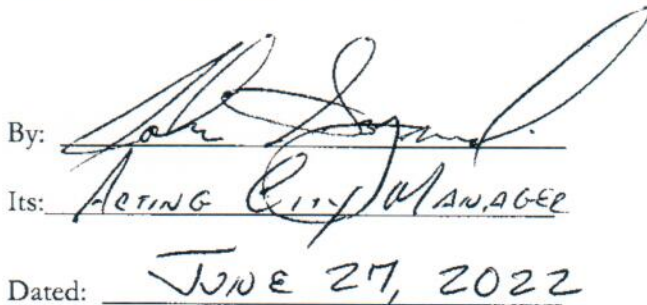 By:
Its: ACTING CITY MANAGER
Dated: JUNE 27, 2022